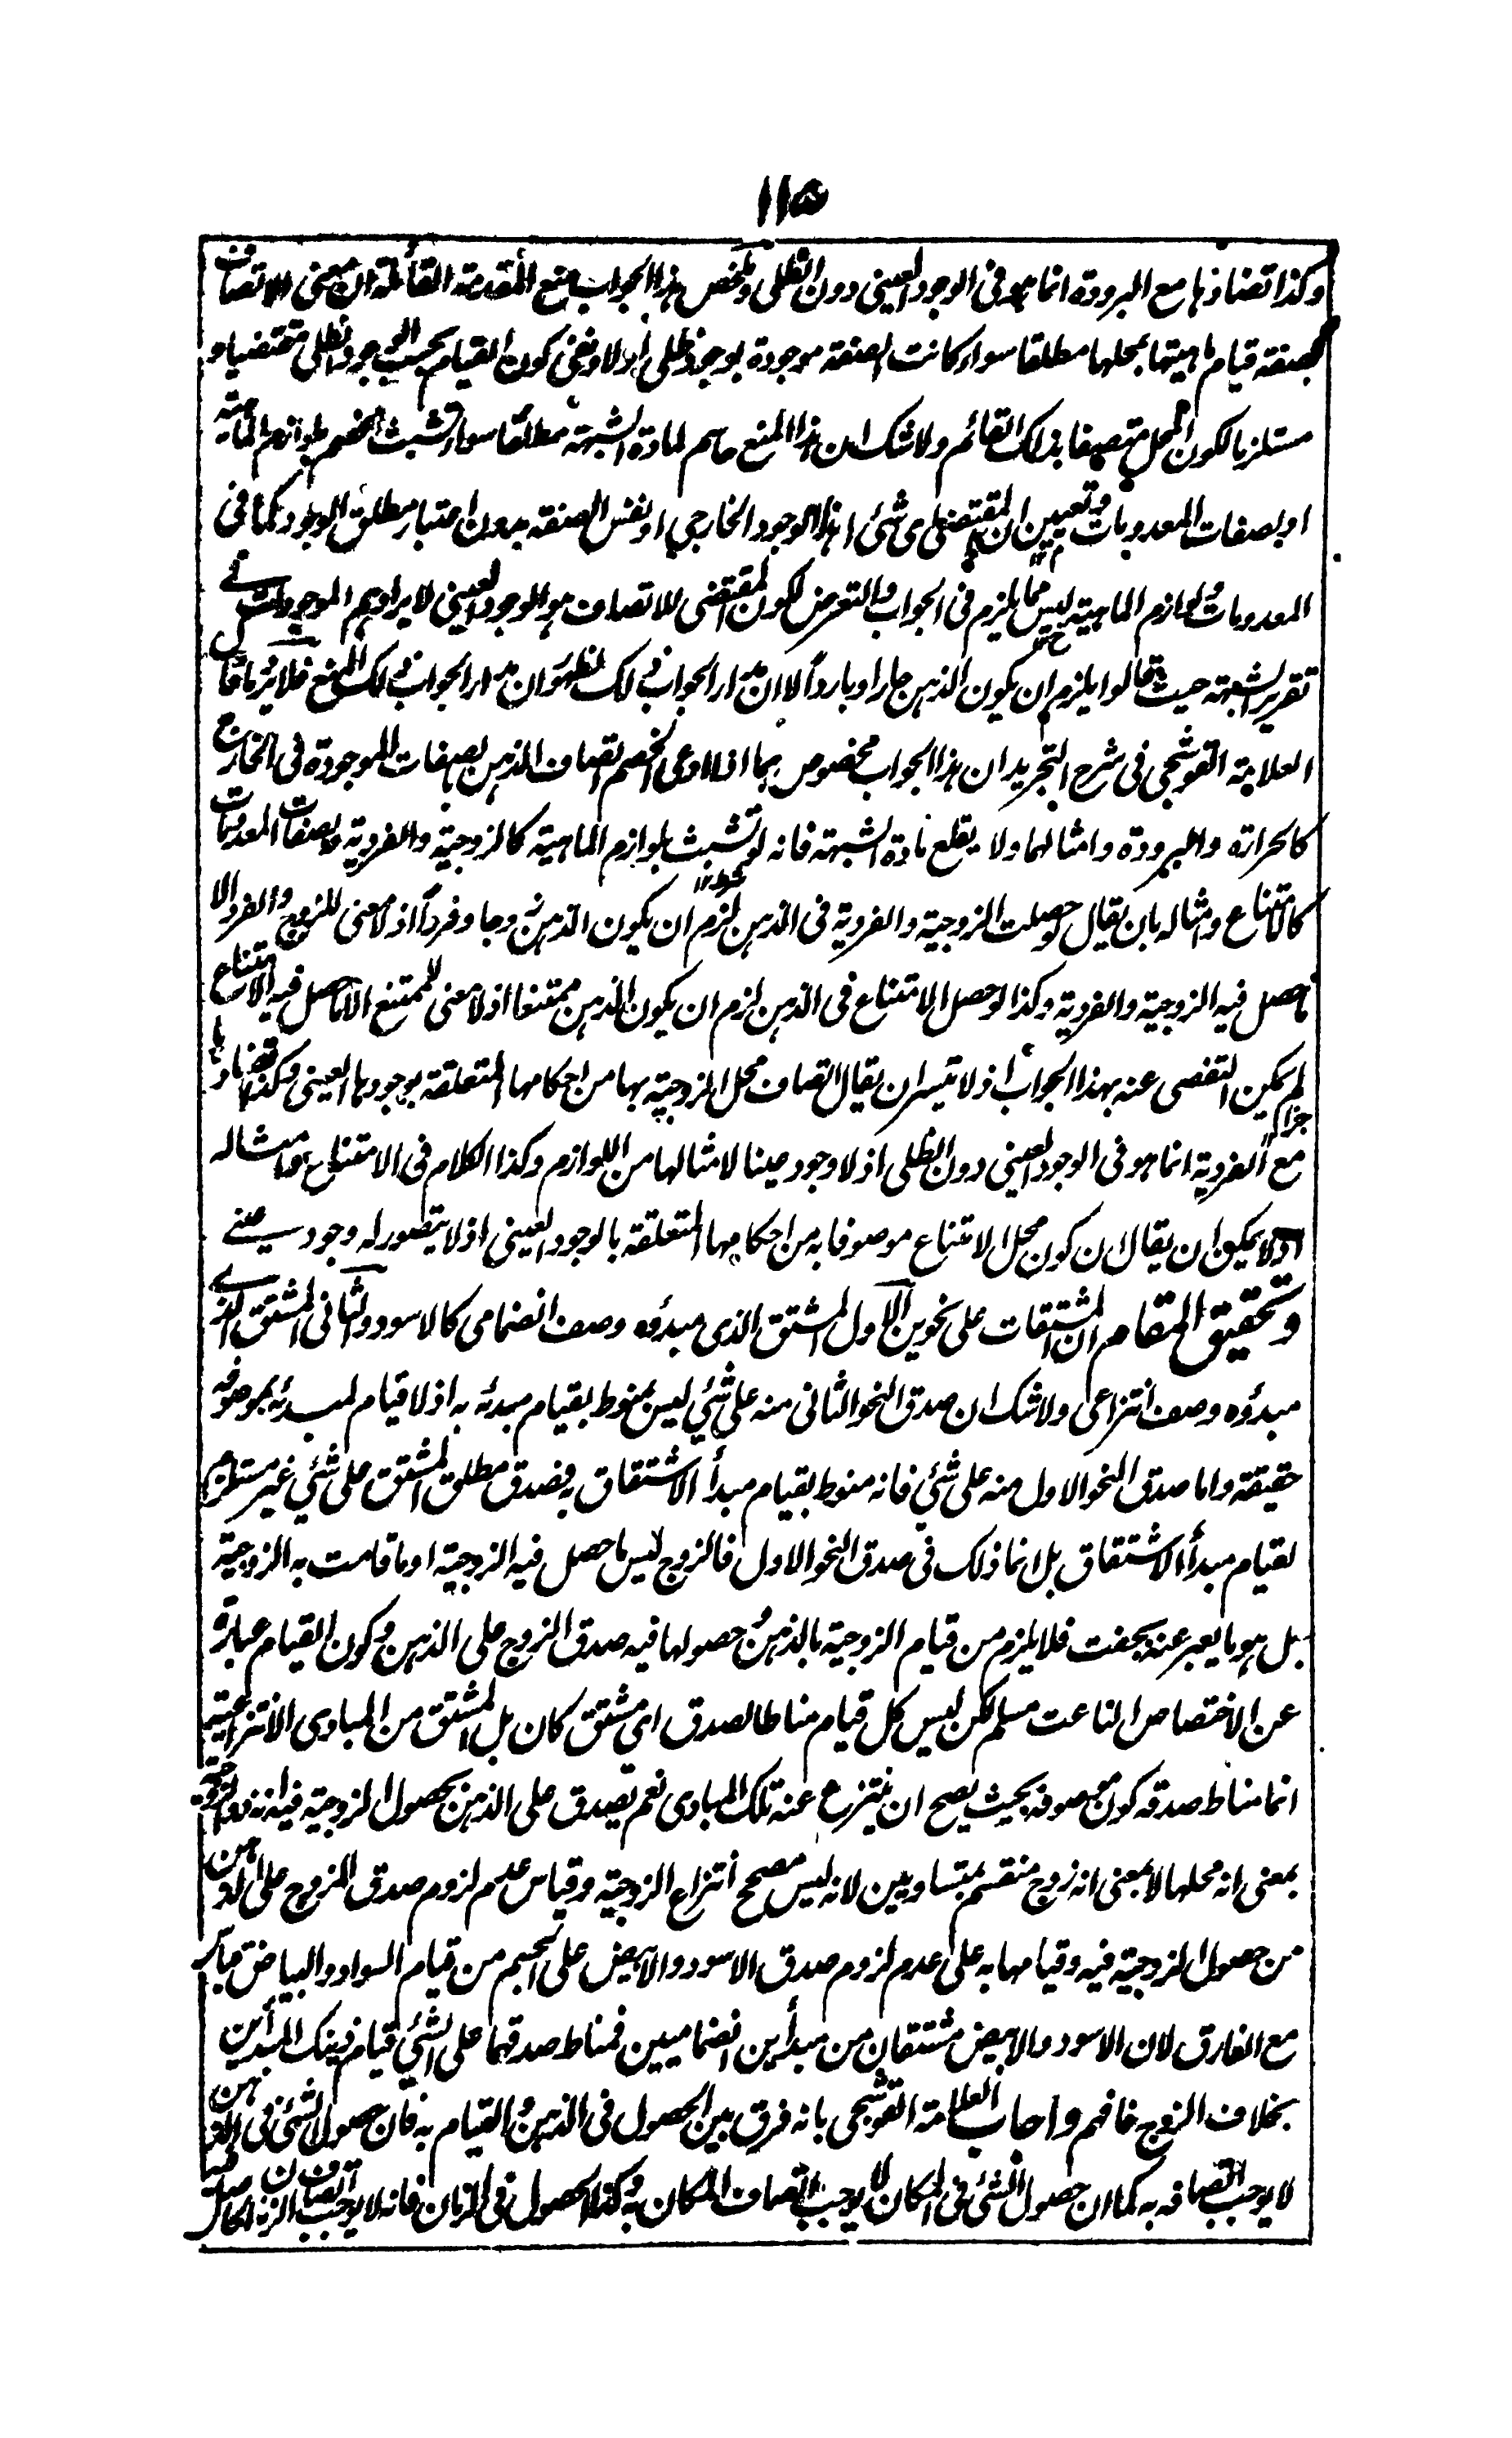 ١١٥
وكذا تضادها مع البرودة انما هو فى الوجود العينى دون الظلى وملخص هذا الجواب منع المقدمة القائلة ان معنى الاتصاف
بصفة قيام ماهيتها بمحلها مطلقا سواء كانت الصفة موجودة بوجود ظلى او لا ونفى كون القيام بحسب الوجود الظلى مقتضيا و
مستلزما لكون المحل متصفا بذلك القائم ولا شك ان هذا المنع حاسم لمادة الشبهة مطلقا سواء تشبث الخصم بلوازم الماهية
او بصفات المعدومات وتعيين ان المقتضى اى شئ اهذا الوجود الخارجى او نفس الصفة بدون اعتبار مطلق الوجود كما فى
المعدومات ولوازم الماهية ليس مما يلزم فى الجواب والتعرض لكون المقتضى للاتصاف هو الوجود العينى لايرادهم الموجودات فى
تقرير الشبهة حيث قالوا يلزم ان يكون الذهن حارا وباردا لا ان مدار الجواب ذلك لظهور ان مدار الجواب ذلك المنع فلا يرد ما قال
العلامة القوشجى فى شرح التجريد ان هذا الجواب مخصوص بما اذا ادعى الخصم اتصاف الذهن بصفات الموجودة فى الخارج
كالحرارة والبرودة وامثالهما ولا يقلع مادة الشبهة فانه لو تشبث بلوازم الماهية كالزوجية والفردية وبصفات المعدومات
كالامتناع وامثاله بان يقال لو حصلت الزوجية والفردية فى الذهن لزم ان يكون الذهن زوجا وفردا اذ لا معنى للزوج والفرد الا
ما حصل فيه الزوجية والفردية وكذا لو حصل الامتناع فى الذهن لزم ان يكون الذهن ممتنعا اذ لا معنى للممتنع الا ما حصل فيه الامتناع
لم يمكن التفصى عنه بهذا الجواب اذ لا تيسر ان يقال اتصاف محل الزوجية بها من احكامها المتعلقة بوجودها العينى وكذا تضادها
مع الفردية انما هو فى الوجود العينى دون الظلى اذ لا وجود عينا لامثالها من اللوازم وكذا الكلام فى الامتناع وامثاله
اذ لا يمكن ان يقال ان كون محل الامتناع موصوفا به من احكامها المتعلقة بالوجود العينى اذ لا يتصور له وجود عينى
وتحقيق المقام ان المشتقات على نحوين الاول المشتق الذى مبدؤه وصف انضمامى كالاسود والثانى المشتق الذى
مبدؤه وصف انتزاعى ولا شك ان صدق النحو الثانى منه على شئ ليس بمنوط بقيام مبدئه به اذ لا قيام لمبدئه بموصوفه
حقيقة واما صدق النحو الاول منه على شئ فانه منوط بقيام مبدأ الاشتقاق به فصدق مطلق المشتق على شئ غير مستلزم
لقيام مبدأ الاشتقاق بل انما ذلك فى صدق النحو الاول فالزوج ليس ما حصل فيه الزوجية او ما قامت به الزوجية
بل هو ما يعبر عنه بجفت فلا يلزم من قيام الزوجية بالذهن و حصولها فيه صدق الزوج على الذهن وكون القيام عبارة
عن الاختصاص الناعت مسلم لكن ليس كل قيام مناطا لصدق اى مشتق كان بل المشتق من المبادى الانتزاعية
انما مناط صدقه كون موصوفه بحيث يصح ان ينتزع عنه تلك المبادى نعم يصدق على الذهن بحصول الزوجية فيه انه ذو الزوجية
بمعنى انه محلها لا بمعنى انه زوج منقسم بمتساويين لانه ليس مصحح انتزاع الزوجية وقياس عدم لزوم صدق الزوج على الذهن
من حصول الزوجية فيه وقيامها به على عدم لزوم صدق الاسود والابيض على الجسم من قيام السواد والبياض قياس
مع الفارق لان الاسود والابيض مشتقان من مبدأين انضماميين فمناط صدقهما على الشئ قيام ذينك المبدأين
بخلاف الزوج فافهم واجاب العلامة القوشجى بانه فرق بين الحصول فى الذهن والقيام به فان حصول الشئ فى الذهن
لا يوجب اتصافه به كما ان حصول الشئ فى المكان لا يوجب اتصاف المكان به وكذا الحصول فى الزمان فانه لا يوجب اتصاف الزمان بالحاصل